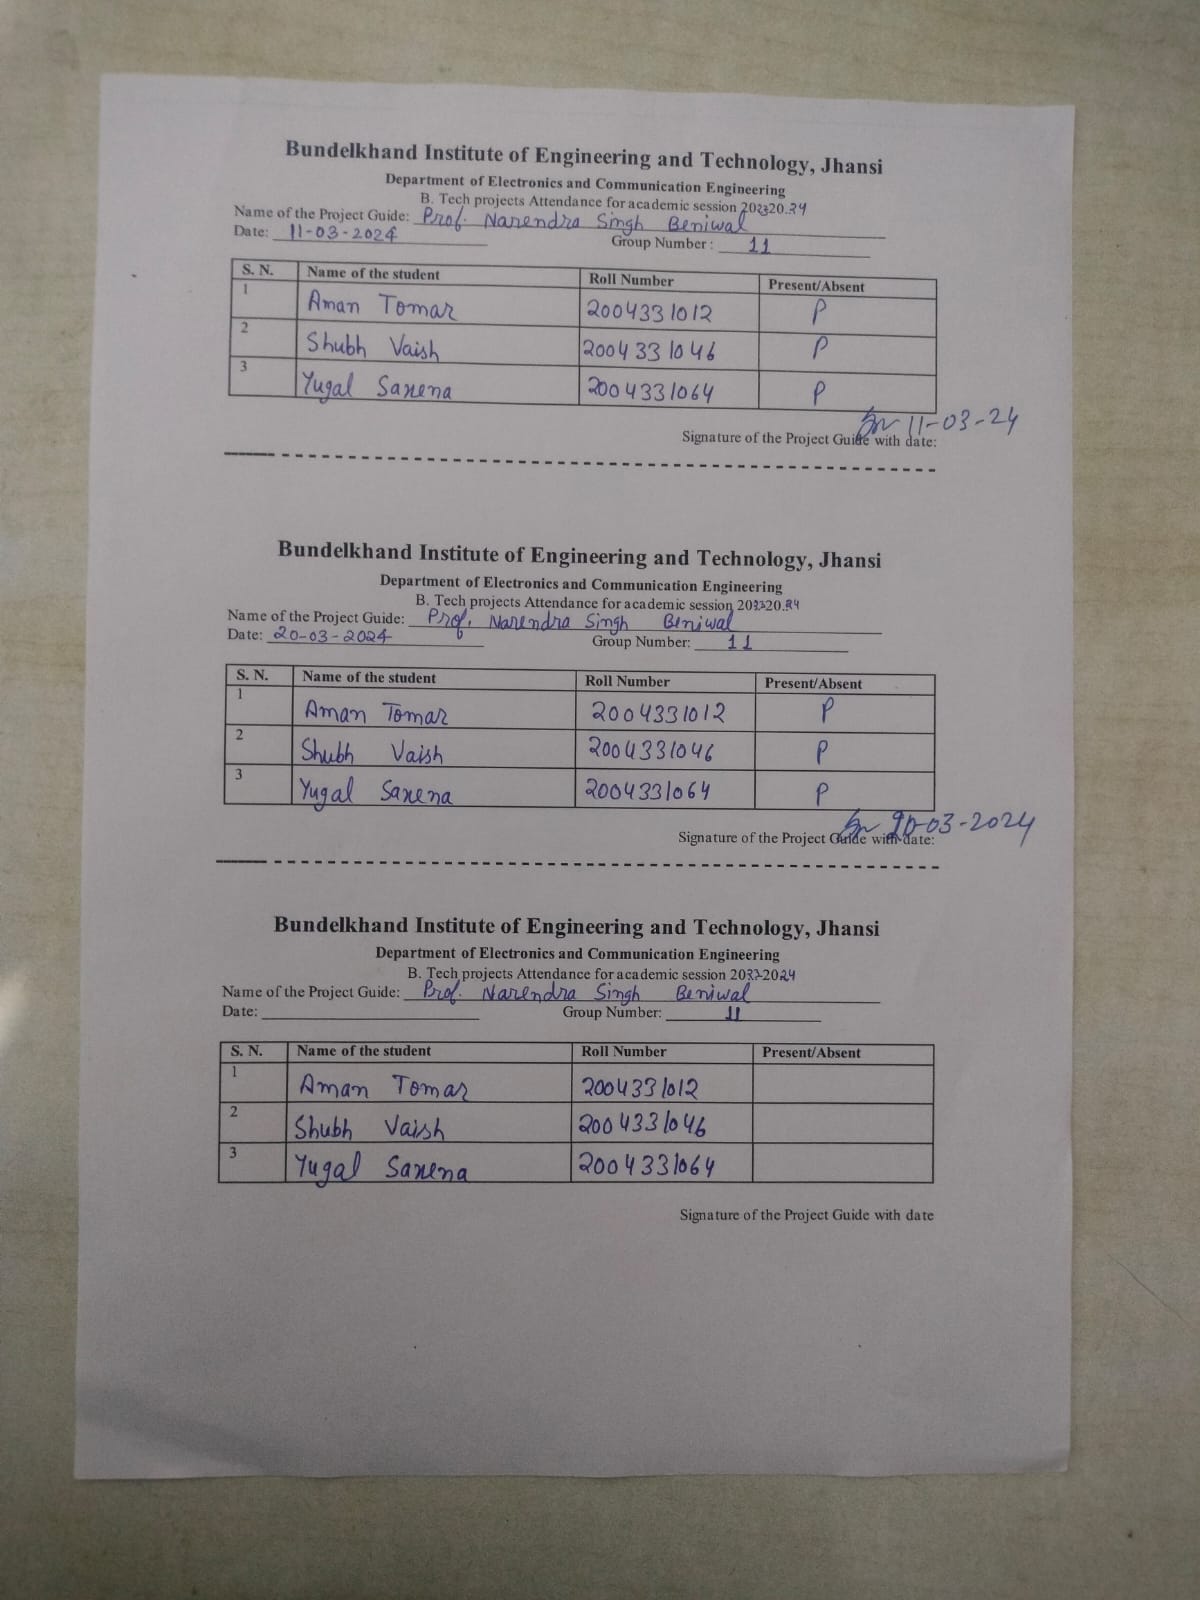 Bundelkhand Institute of Engineering and Technology, Jhansi
Department of Electronics and Communication Engineering
B. Tech projects Attendance for academic session 2023-2024
Name of the Project Guide: Prof. Narendra Singh Beniwal
Date: 11-03-2024 Group Number : 11
S. N. Name of the student Roll Number Present/Absent
1 Aman Tomar 2004331012 P
2 Shubh Vaish 2004331046 P
3 Yugal Saxena 2004331064 P
11-03-24
Signature of the Project Guide with date:
Bundelkhand Institute of Engineering and Technology, Jhansi
Department of Electronics and Communication Engineering
B. Tech projects Attendance for academic session 2023-2024
Name of the Project Guide: Prof. Narendra Singh Beniwal
Date: 20-03-2024 Group Number: 11
S. N. Name of the student Roll Number Present/Absent
1 Aman Tomar 2004331012 P
2 Shubh Vaish 2004331046 P
3 Yugal Saxena 2004331064 P
20-03-2024
Signature of the Project Guide with date:
Bundelkhand Institute of Engineering and Technology, Jhansi
Department of Electronics and Communication Engineering
B. Tech projects Attendance for academic session 2023-2024
Name of the Project Guide: Prof. Narendra Singh Beniwal
Date: Group Number: 11
S. N. Name of the student Roll Number Present/Absent
1 Aman Tomar 2004331012
2 Shubh Vaish 2004331046
3 Yugal Saxena 2004331064
Signature of the Project Guide with date